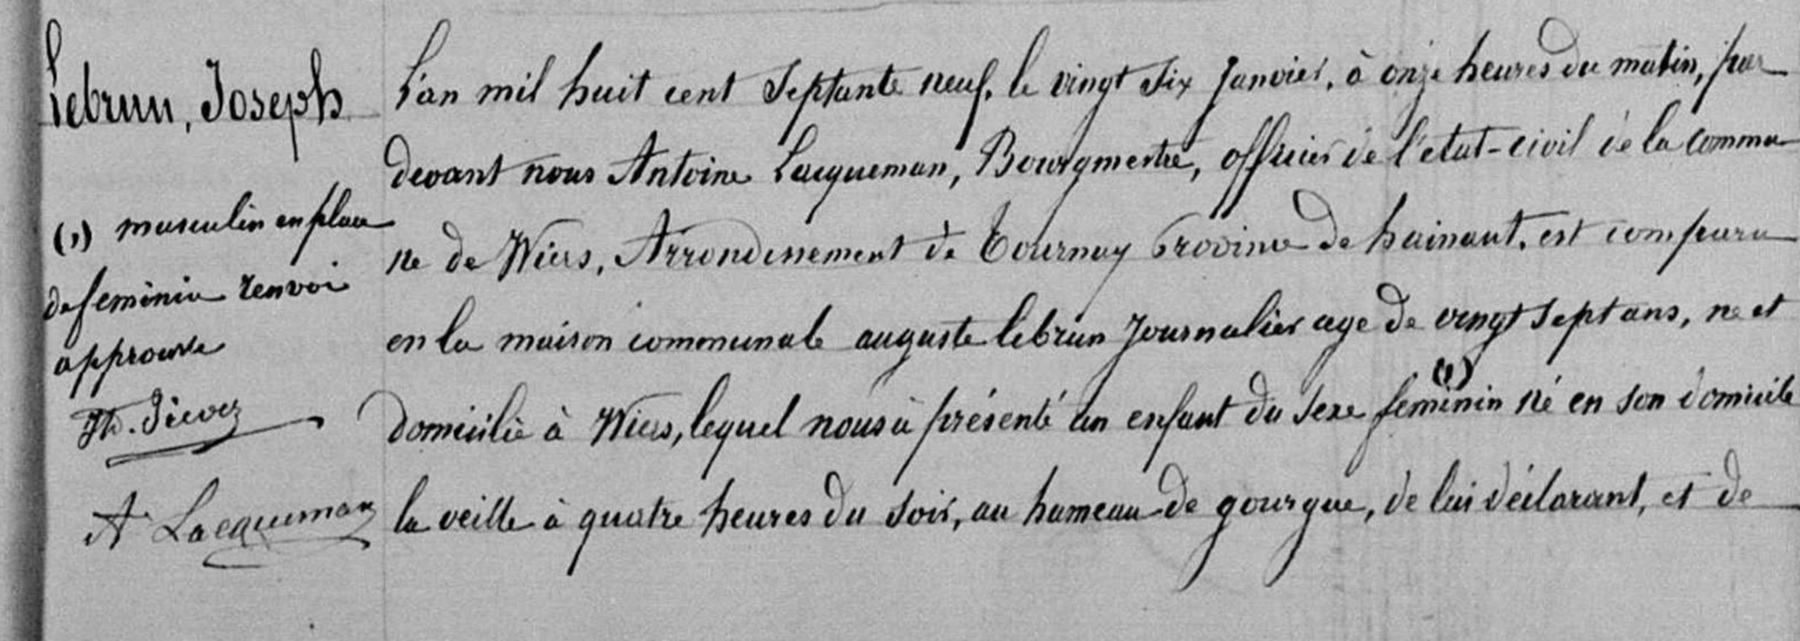 Lebrun, Joseph
(1) masculin en place
de feminin renvoi
approuve
A Lacqueman
L'an mil huit cent septante neuf, le vingt six Janvier, à onze heures du matin, par
devant nous Antoine Lacqueman, Bourgmestre, officier de l'etat-civil de la commu
ne de Wiers, Arrondissement de Tournay Province de hainaut, est comparu
en la maison communale auguste lebrun Journalier age de vingt sept ans, ne et
domicilié à Wiers, lequel nous à présenté un enfant du sexe feminin (1) né en son domicile
la veille à quatre heures du soir, au hameau de gourgue, de lui déclarant, et de